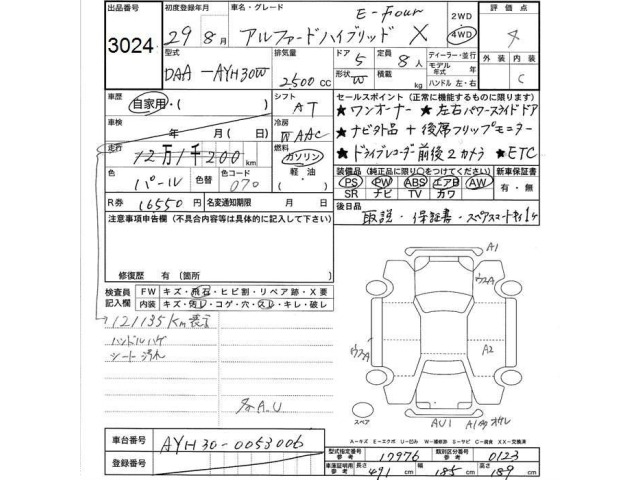 出品番号 初度登録年月 車名・グレード 2WD 評価点
3024 29年8月 アルファードハイブリッド X E-Four 4WD 4
型式 排気量 ドア 定員 ディーラー・並行 外装 内装
DAA-AYH30W 2,500cc 5 8人 モデル年式 年 C
形状 W 積載 kg ハンドル 左・右
車歴 自家用・( ) シフト AT
セールスポイント(正常に機能するものに限ります)
★ワンオーナー ★左右パワースライドドア
車検 年 月( 日) 冷房 WAAC
★ナビ外品 + 後席フリップモニター
走行 12万1千200km 燃料 ガソリン 軽油 ( )
★ドライブレコーダー前後2カメラ ★ETC
色 パール 色替 色コード 070
装備品(純正品に限り○をつけてください) 新車保証書
PS PW ABS エアB AW 有・無
SR ナビ TV カワ
R券 16550円 名変通知期限 月 日
後日品 取説・保証書・スペアスマートキー1ケ
注意事項申告欄(不具合内容等は具体的に記入して下さい)
修復歴 有(箇所 )
検査員記入欄 FW キズ・飛石・ヒビ割・リペア跡・X要
内装 キズ・汚レ・コゲ・穴・スレ・キレ・破レ
121135Km表示
ハンドルハゲ
シート汚れ
多A.U
A1
ウスA
ウスA A2
スペア AU1
A-キズ E-エクボ U-凹み W-補修跡 S-サビ C-腐食 XX-交換済
車台番号 AYH30-0053006
型式指定番号 参考 17976 類別区分番号 参考 0123
登録番号
車庫証明用 参考 長さ 491cm 幅 185cm 高さ 189cm